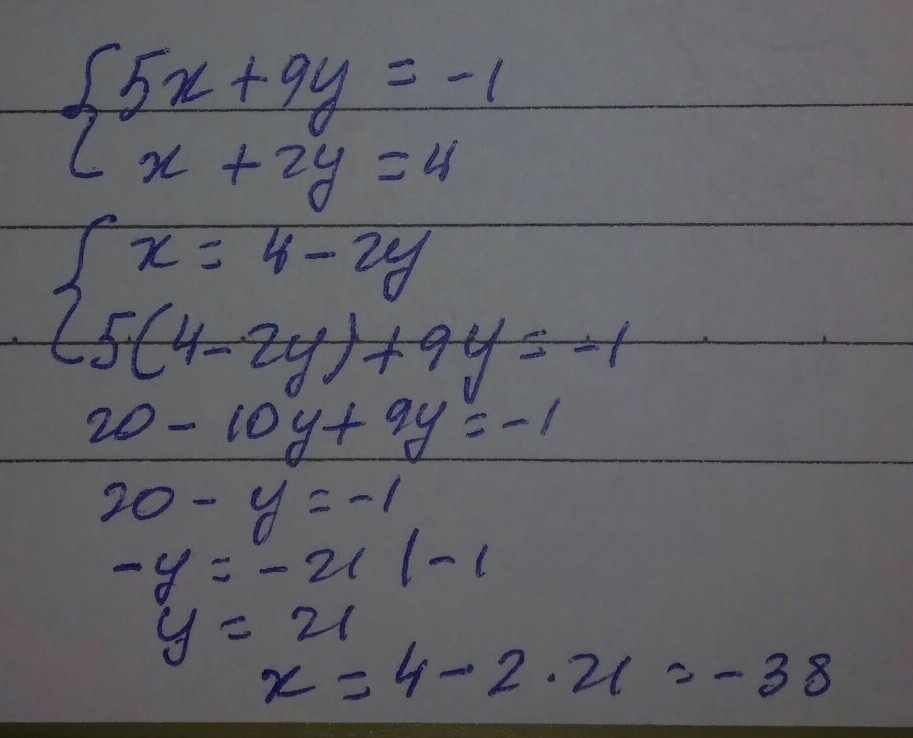 5x + 9y = -1
x + 2y = 4
x = 4 - 2y
5(4 - 2y) + 9y = -1
20 - 10y + 9y = -1
20 - y = -1
-y = -21 | -1
y = 21
x = 4 - 2 · 21 = -38